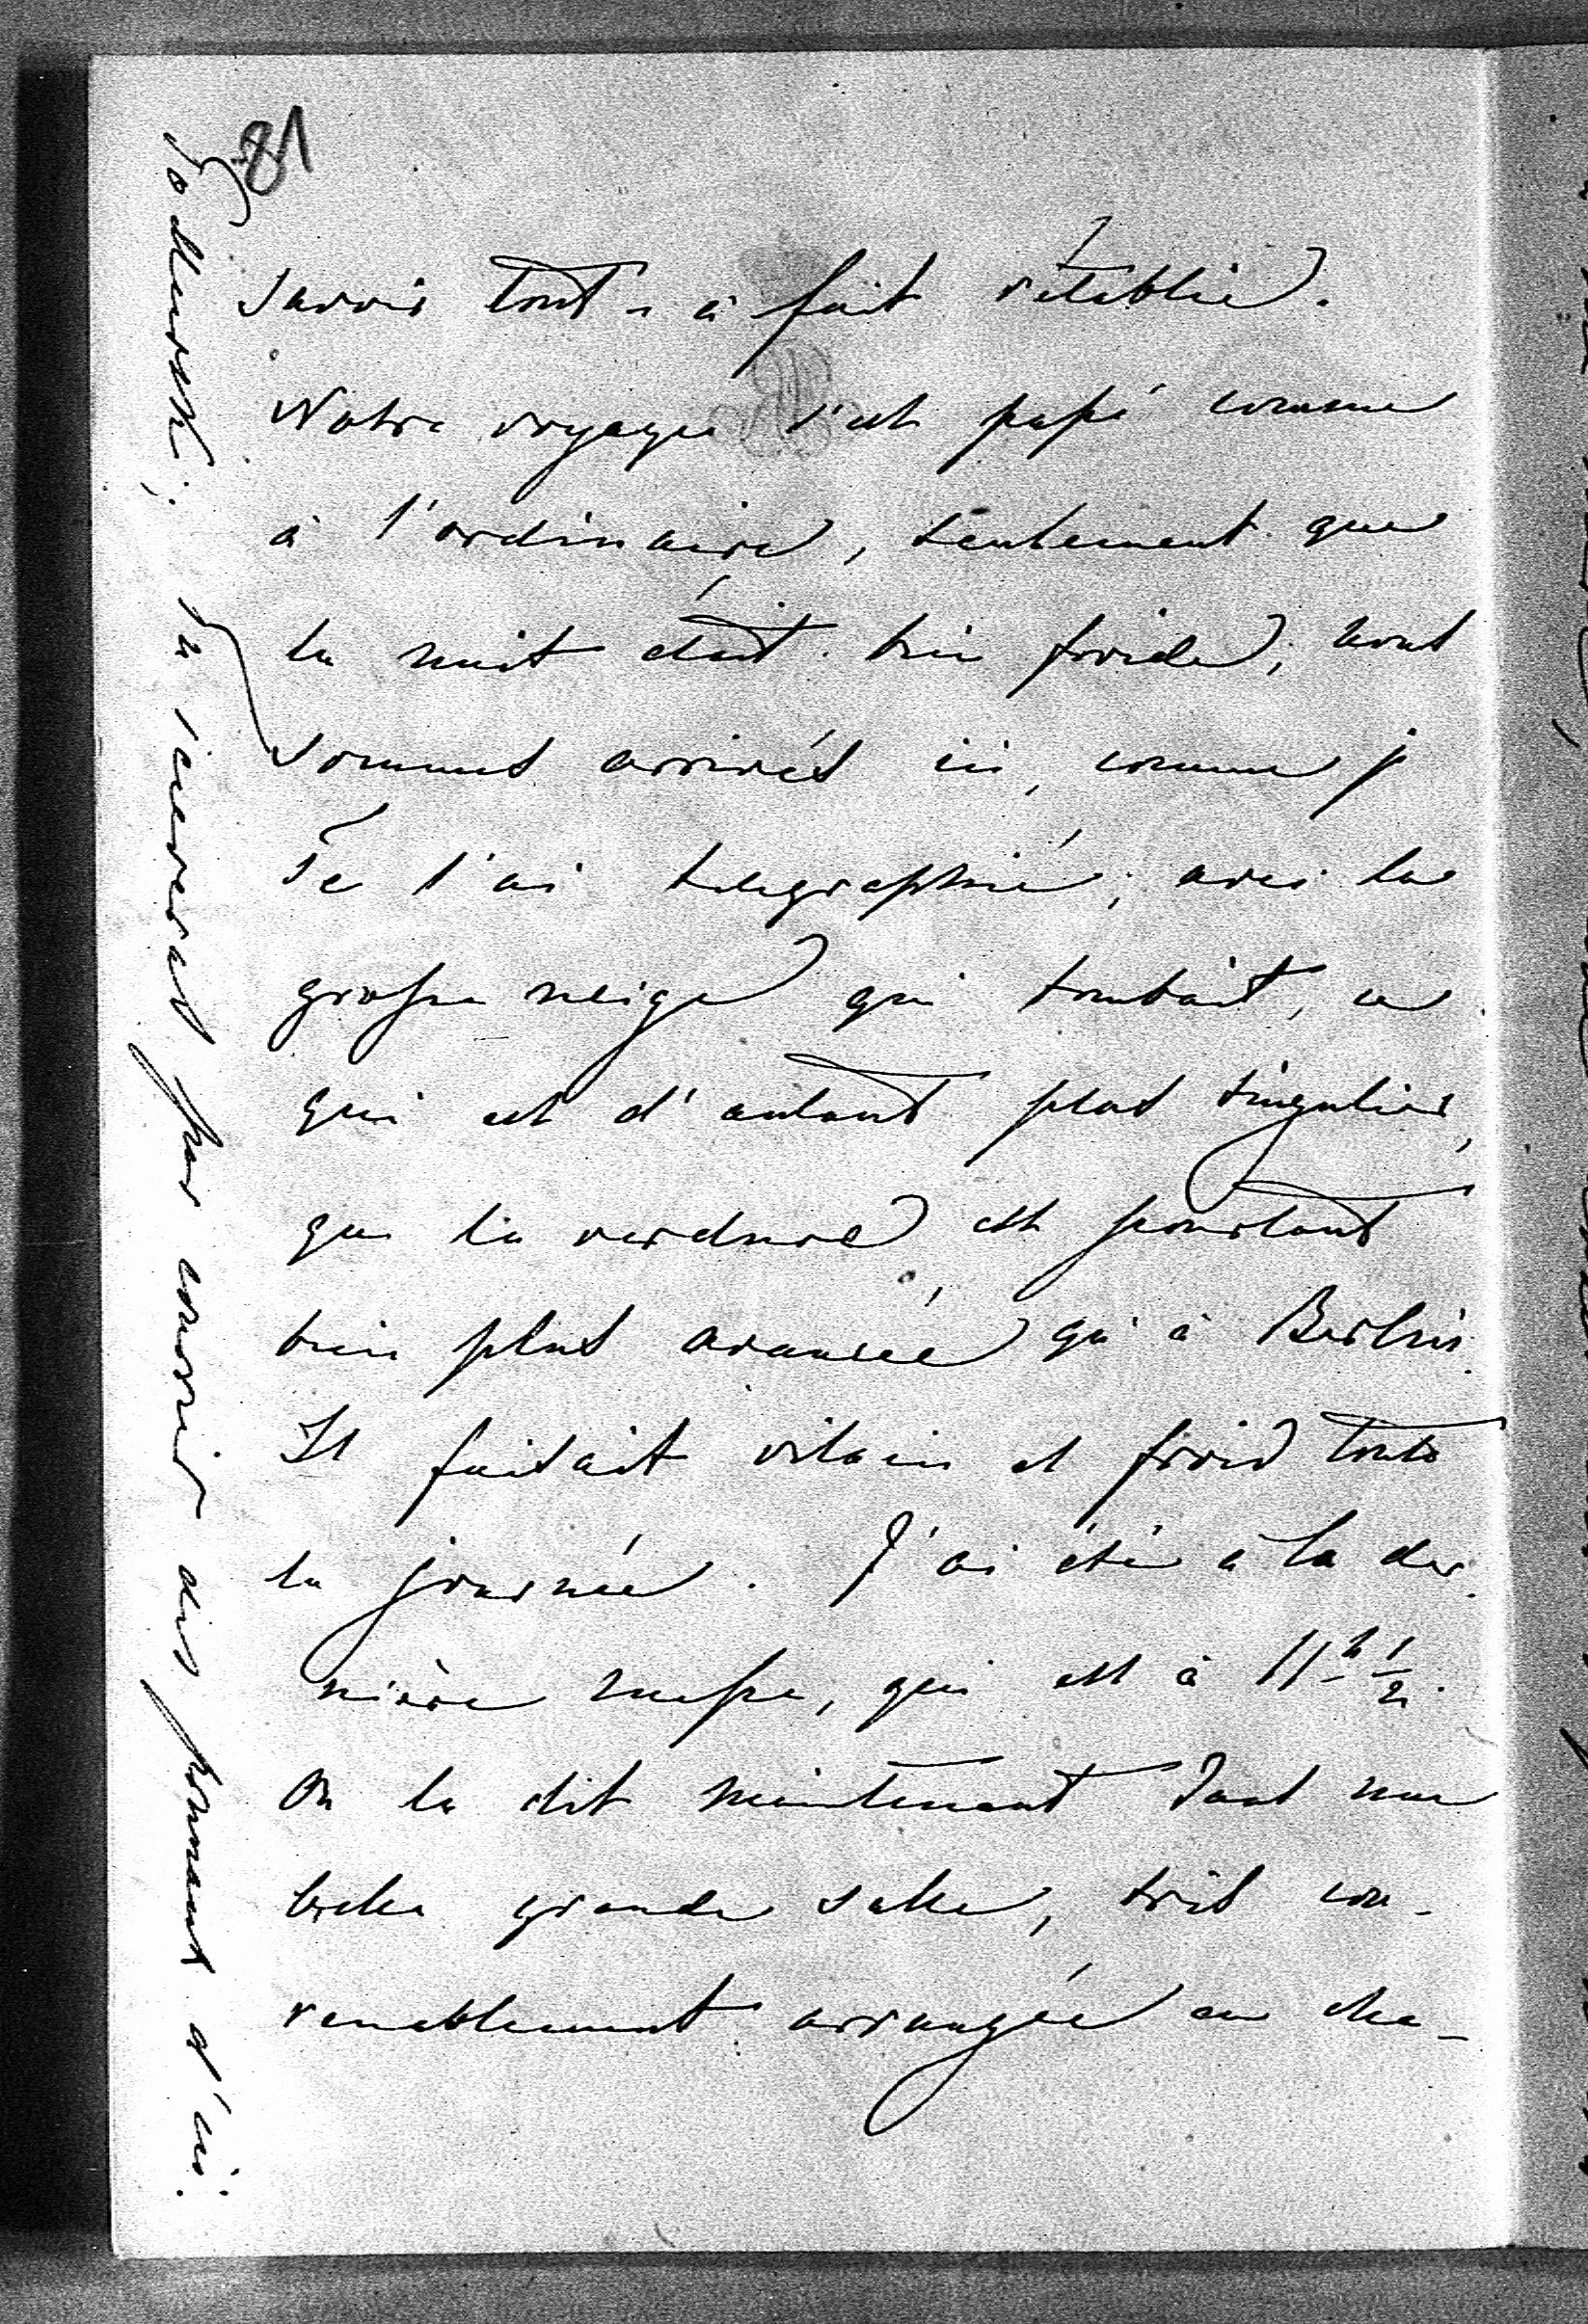 81
savoir tout-à fait rétablie.
Notre voyage s'est passé comme
à l'ordinaire, seulement que
la nuit était bien froide; nous
sommes arrivés ici, comme je
Te l'ai telegraphié, avec la
grosse neige qui tombait, ce
qui est d'autant plus singulier,
que la verdure est pourtant
bien plus avancée qu'à Berlin.
Il faisait vilain et froid toute
la journée. J'ai été à la der-
nière messe, qui est à 11h 1/2.
On la dit maintenant dans une
belle grande salle, très con-
venablement arrangée en cha-
par courrier des pommes d'ici.